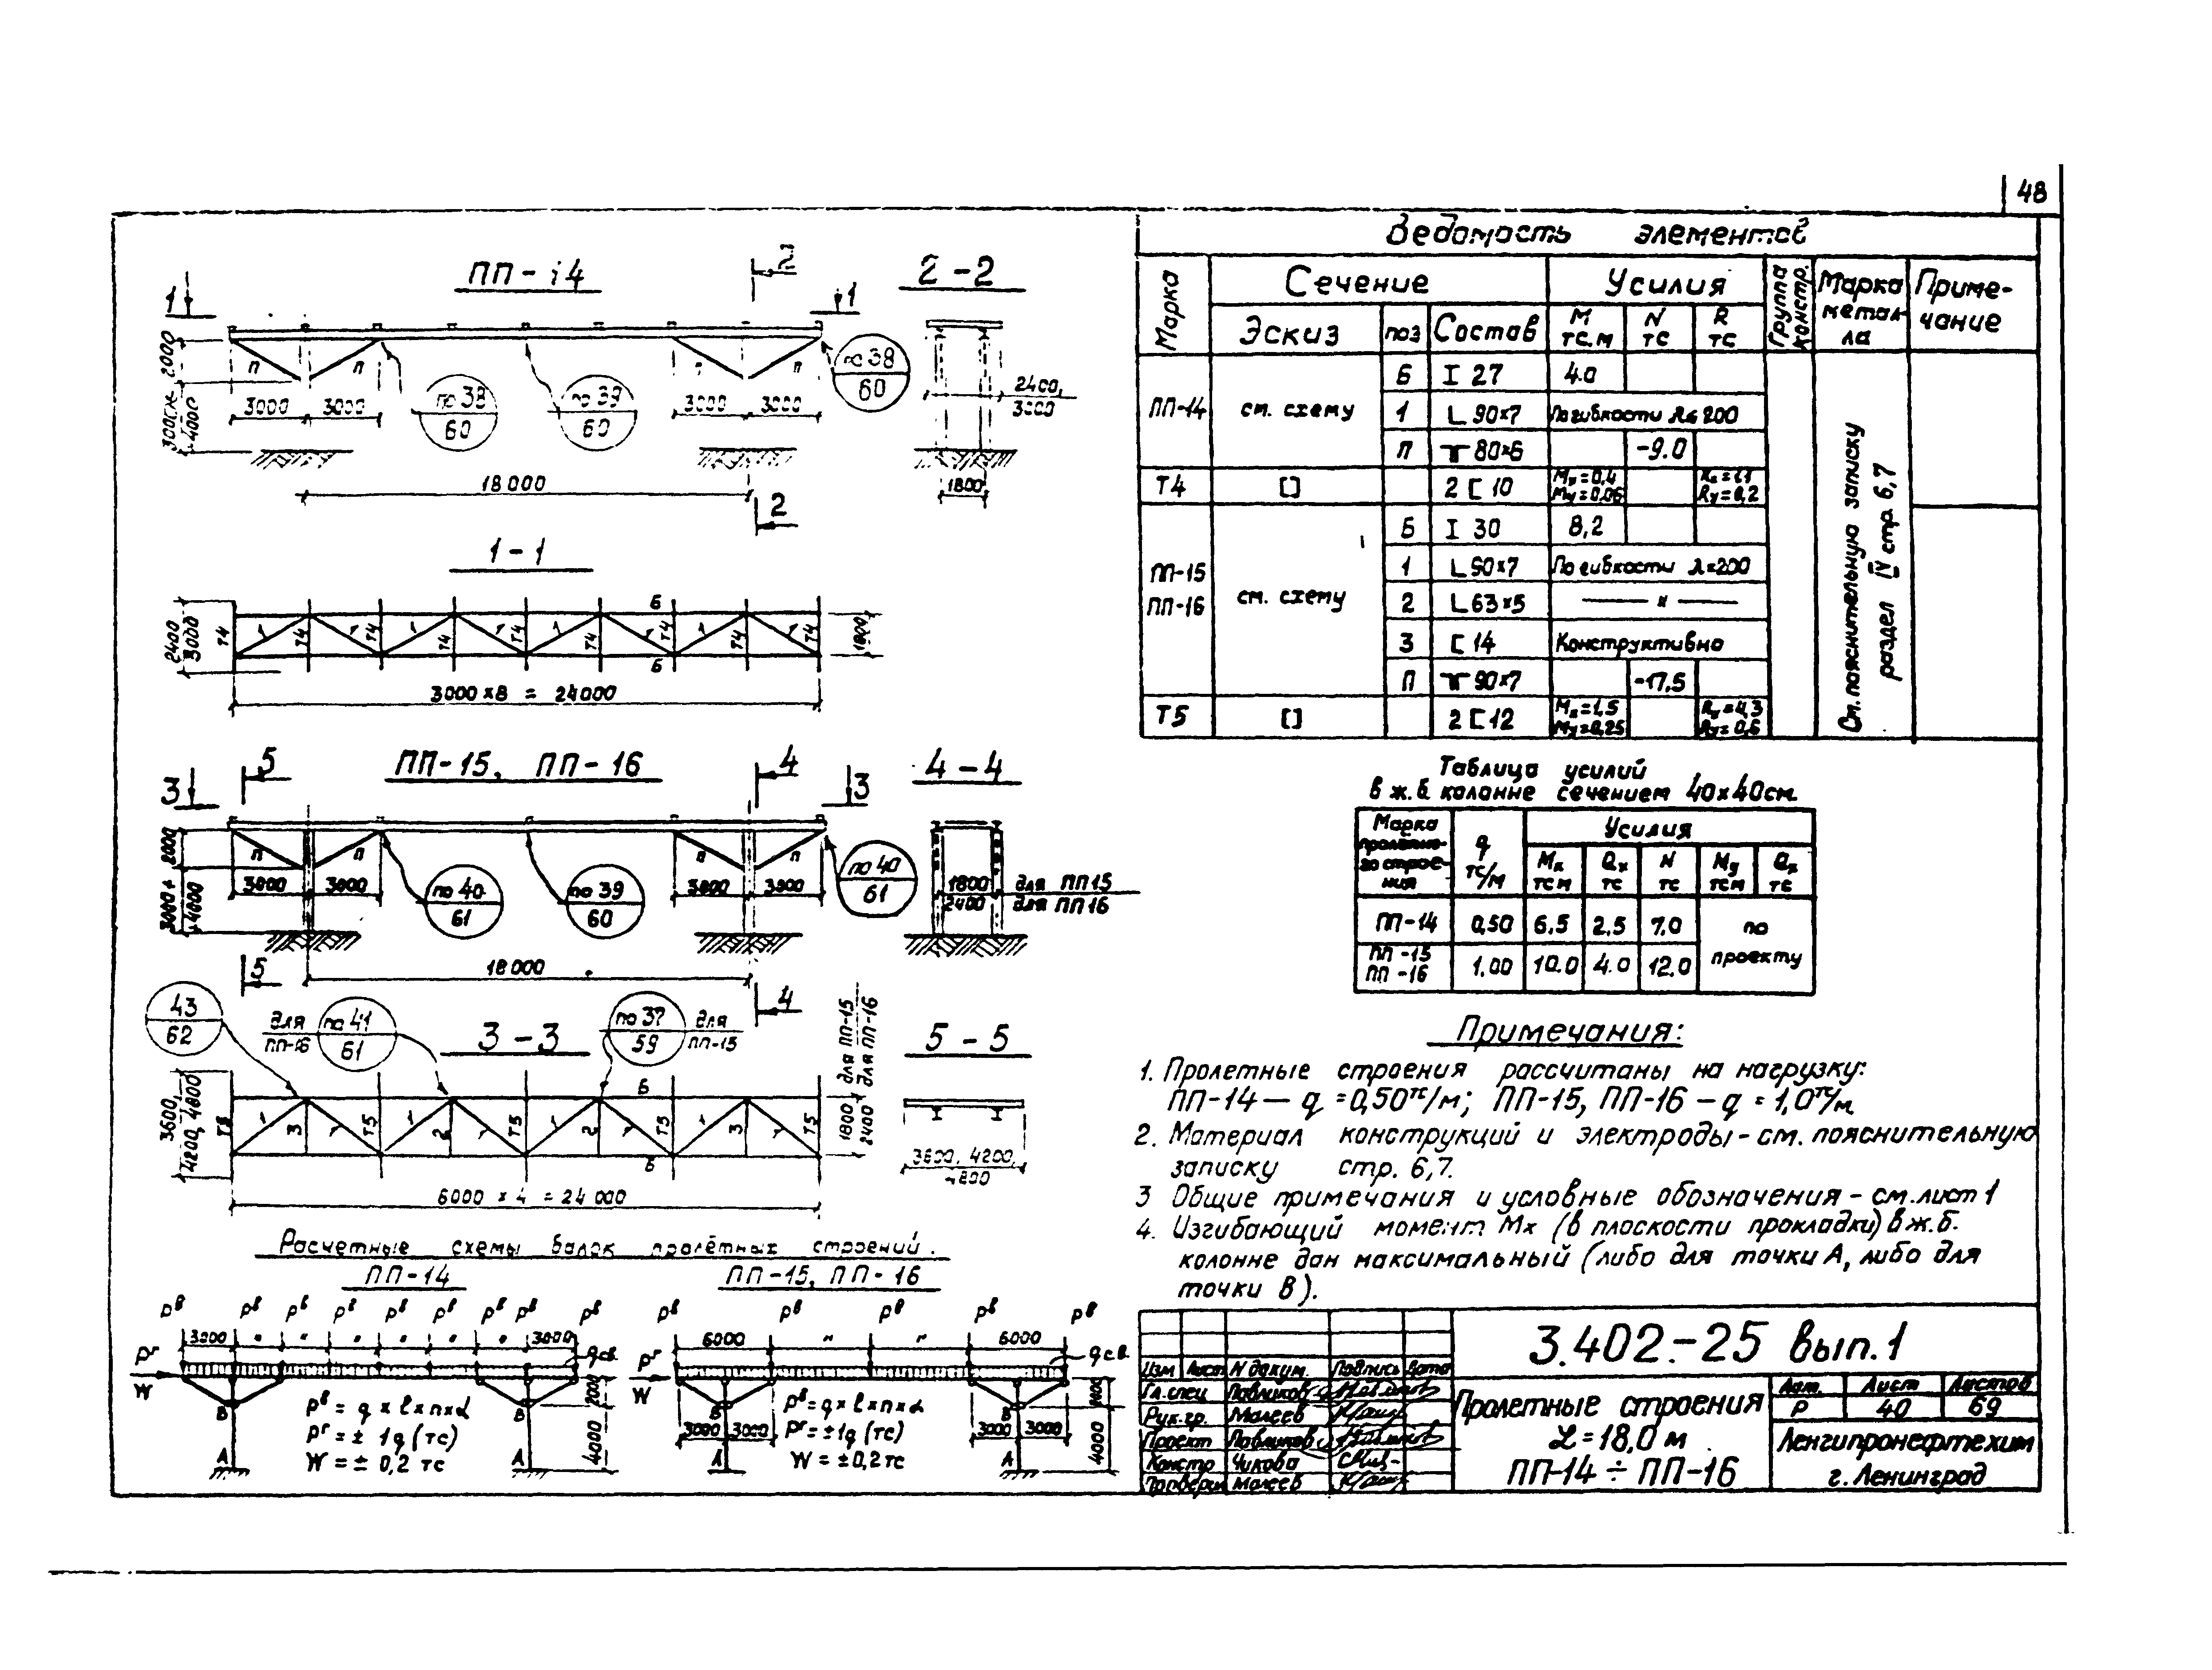 48
ПП-14
2-2
1
1
2
2
2000
3000÷4000
П
П
П
П
3000
3000
3000
3000
по 38
60
по 39
60
по 38
60
2400,
3000
18000
1800
1-1
Б
Б
2400
3000
Т4
Т4
Т4
Т4
Т4
Т4
Т4
Т4
1800
3000 х 8 = 24000
ПП-15, ПП-16
4-4
5
4
3
3
2000
3000÷4000
П
П
П
П
3000
3000
3000
3000
по 40
61
по 39
60
по 40
61
1800 для ПП15
2400 для ПП16
18000
5
4
43
62
для
ПП-16
по 41
61
3-3
по 37
59
для
ПП-15
5-5
3600,
4200, 4800
Т5
3
Т5
2
Т5
2
Т5
3
Т5
Б
Б
1800 для ПП-15
2400 для ПП-16
3600, 4200,
4800
6000 х 4 = 24 000
Расчетные схемы балок пролётных строений.
ПП-14
ПП-15, ПП-16
Рв Рв Рв Рв Рв Рв Рв Рв Рв
Рв Рв Рв Рв Рв
3000 " " " " " " 3000
6000 " " 6000
qсв.
qсв.
Рг
W
Рг
W
В
В
В
В
2000
4000
2000
4000
3000 3000
3000 3000
Рв = q х l х n х α
Рг = ± 1q (тс)
W = ± 0,2 тс
Рв = q х l х n х α
Рг = ± 1q (тс)
W = ± 0,2 тс
А
А
А
А
Ведомость элементов
Марка
Сечение
Усилия
Группа констр.
Марка металла
Примечание
Эскиз
поз
Состав
М тс.м
N тс
R тс
ПП-14 см. схему Б I 27 4.0
1 L 90×7 По гибкости λ≤200
П ┳ 80×6 -9.0
Т4 [] 2 [ 10 Mx=0,4 My=0,06 Rx=1,1 Ry=0,2
ПП-15 ПП-16 см. схему Б I 30 8,2
1 L 90×7 По гибкости λ=200
2 L 63×5 — " —
3 [ 14 Конструктивно
П ┳ 90×7 -17,5
Т5 [] 2 [ 12 Mx=1,5 My=0,25 Rx=4,3
См. пояснительную записку
раздел IV стр. 6,7
Таблица усилий
в ж.б. колонне сечением 40×40см.
Марка пролетного строения
q тс/м
Усилия
Мх тсм
Qx тс
N тс
Му тсм
тс
ПП-14 0,50 6.5 2.5 7.0
ПП-15 ПП-16 1.00 10.0 4.0 12.0
по
проекту
Примечания:
1. Пролетные строения рассчитаны на нагрузку:
ПП-14 — q = 0,50тс/м; ПП-15, ПП-16 — q = 1,0тс/м
2. Материал конструкций и электроды - см. пояснительную
записку стр. 6,7.
3 Общие примечания и условные обозначения - см. лист 1
4. Изгибающий момент Мх (в плоскости прокладки) в ж.б.
колонне дан максимальный (либо для точки А, либо для
точки В).
3.402-25 вып.1
Изм Лист N докум. Подпись Дата
Гл.спец Павликов
Рук.гр. Малеев
Проект Павликов
Констр Чикова
Проверил Малеев
Пролетные строения
L = 18,0 м
ПП-14 ÷ ПП-16
Лит. Лист Листов
Р 40 69
Ленгипронефтехим
г. Ленинград